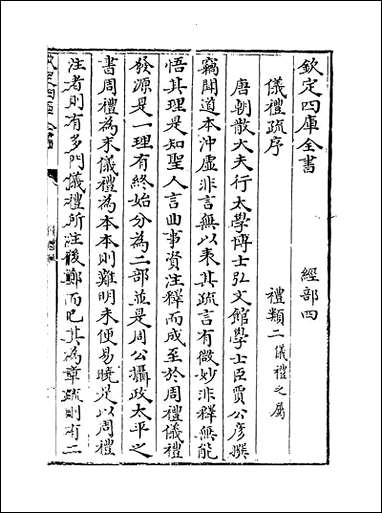 欽定四庫全書　　經部四
儀禮疏序　　禮類二儀禮之屬
唐朝散大夫行太學博士弘文館學士臣賈公彥撰
竊聞道本沖虛非言無以表其疏言有微妙非釋無能
悟其理是知聖人言曲事資注釋而成至於周禮儀禮
發源是一理有終始分為二部並是周公攝政太平之
書周禮為末儀禮為本本則難明末便易曉是以周禮
注者則有多門儀禮所注後鄭而已其為章疏則有二